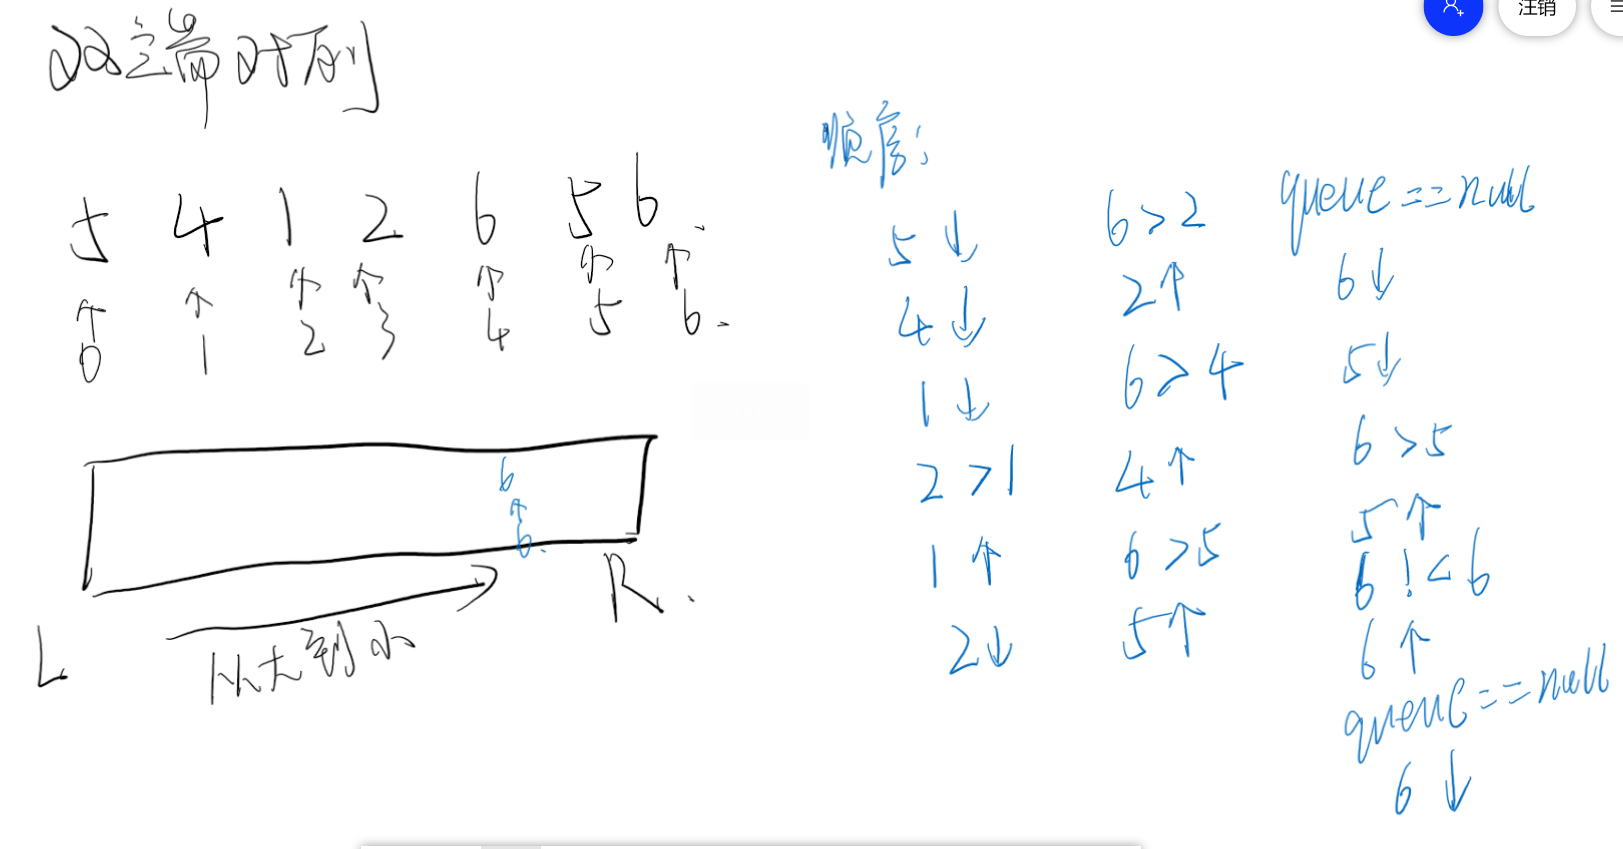 注销
双端队列
5 4 1 2 6 5 6.
↑ ↑ ↑ ↑ ↑ ↑ ↑
0 1 2 3 4 5 6.
6
↑
6.
L.
R.
从大到小
顺序:
5↓
4↓
1↓
2>1
1↑
2↓
6>2
2↑
6>4
4↑
6>5
5↑
queue==null
6↓
5↓
6>5
5↑
6!<6
6↑
queue==null
6↓